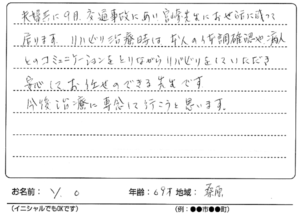 9月、交通事故にあい宮崎先生にお世話に成って
居ります。リハビリ治療時は本人の体調確認や病人
とのコミュニケーションをとりながらリハビリをしていただき
安心してお任せのできる先生です
今後治療に専念して行こうと思います。
お名前： Y. O 年齢： 69才 地域：
(イニシャルでもOKです) (例：●●市●●町)